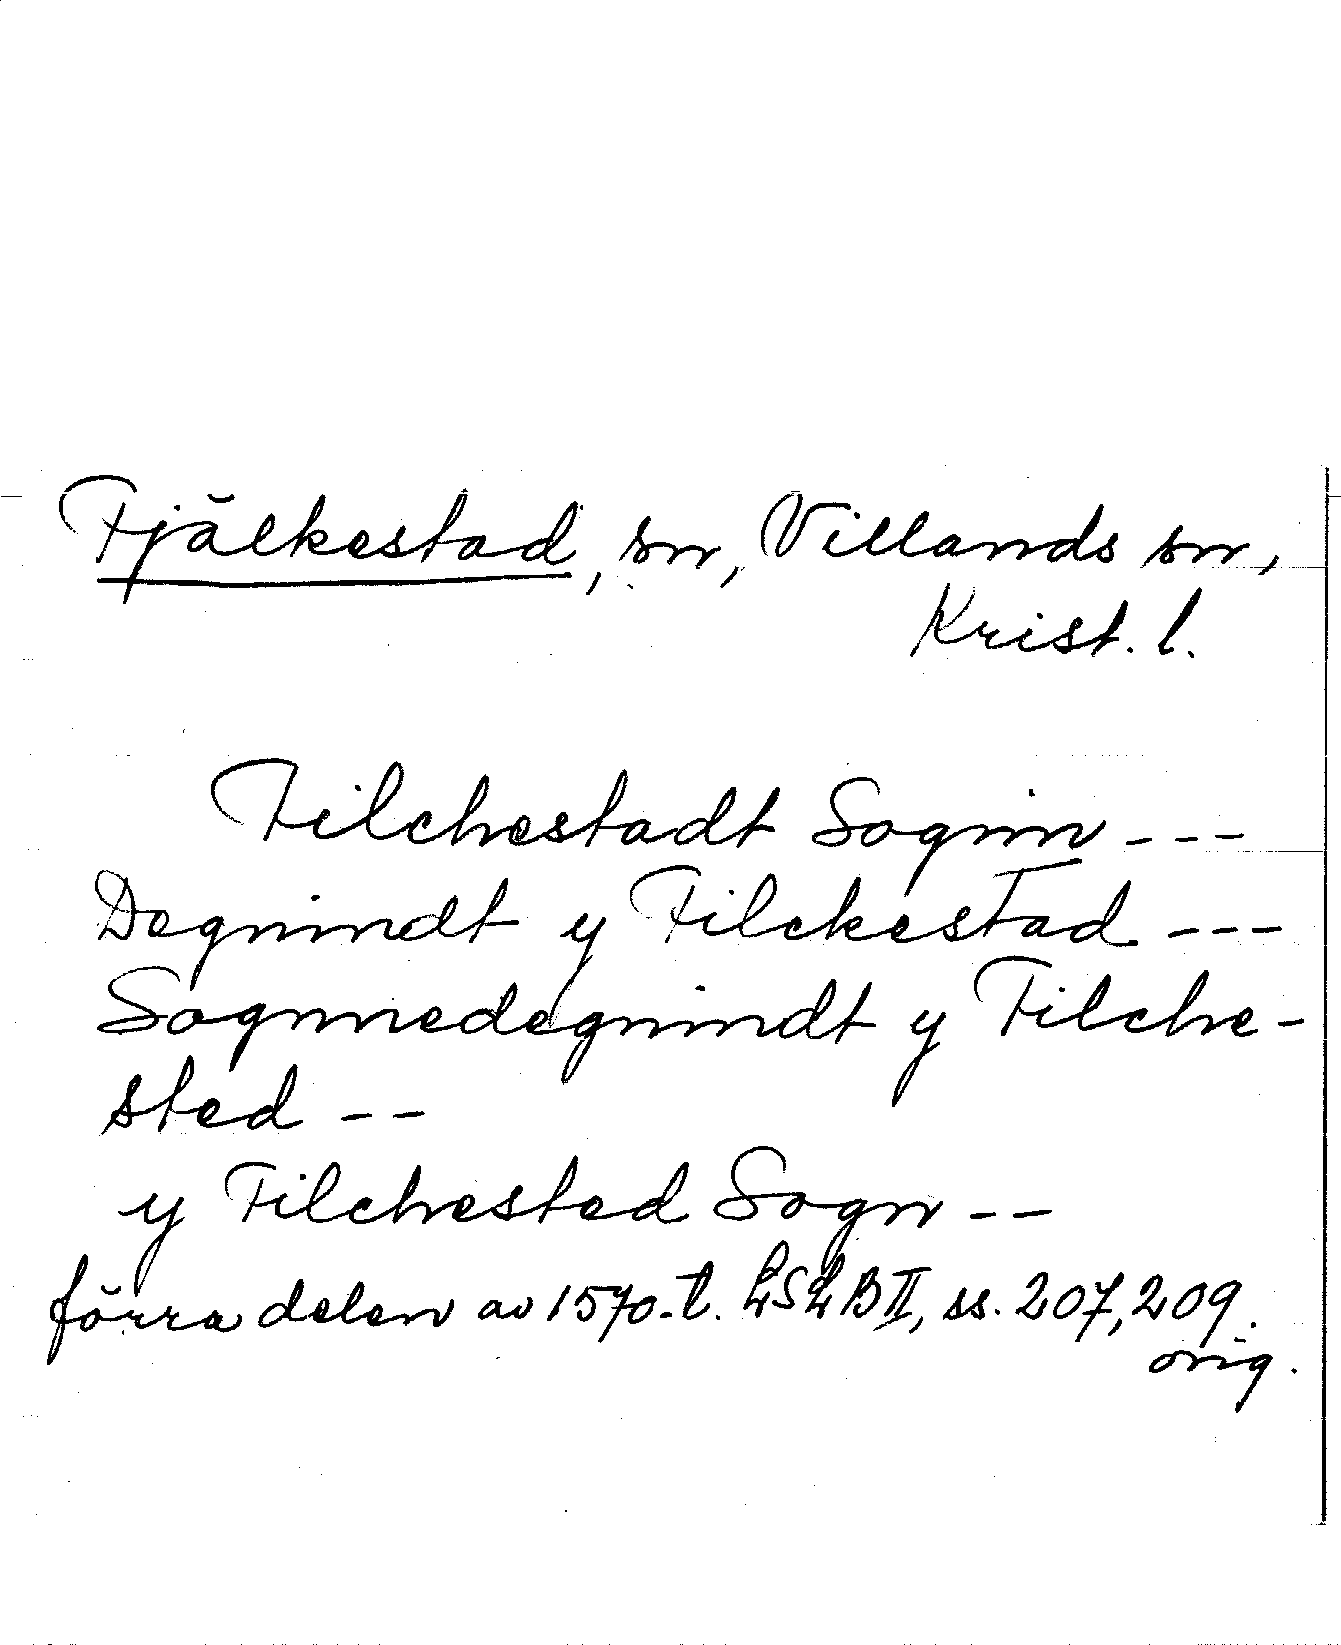 Fjälkestad, sn, Villands sn,
Krist. l.
Filchestadt Sognn ---
Degnindt y Filckestad ---
Sognnedegnindt y Filche-
sted --
y Filchested Sogn --
förra delen av 1570-t. LSLB II, ss. 207, 209.
orig.